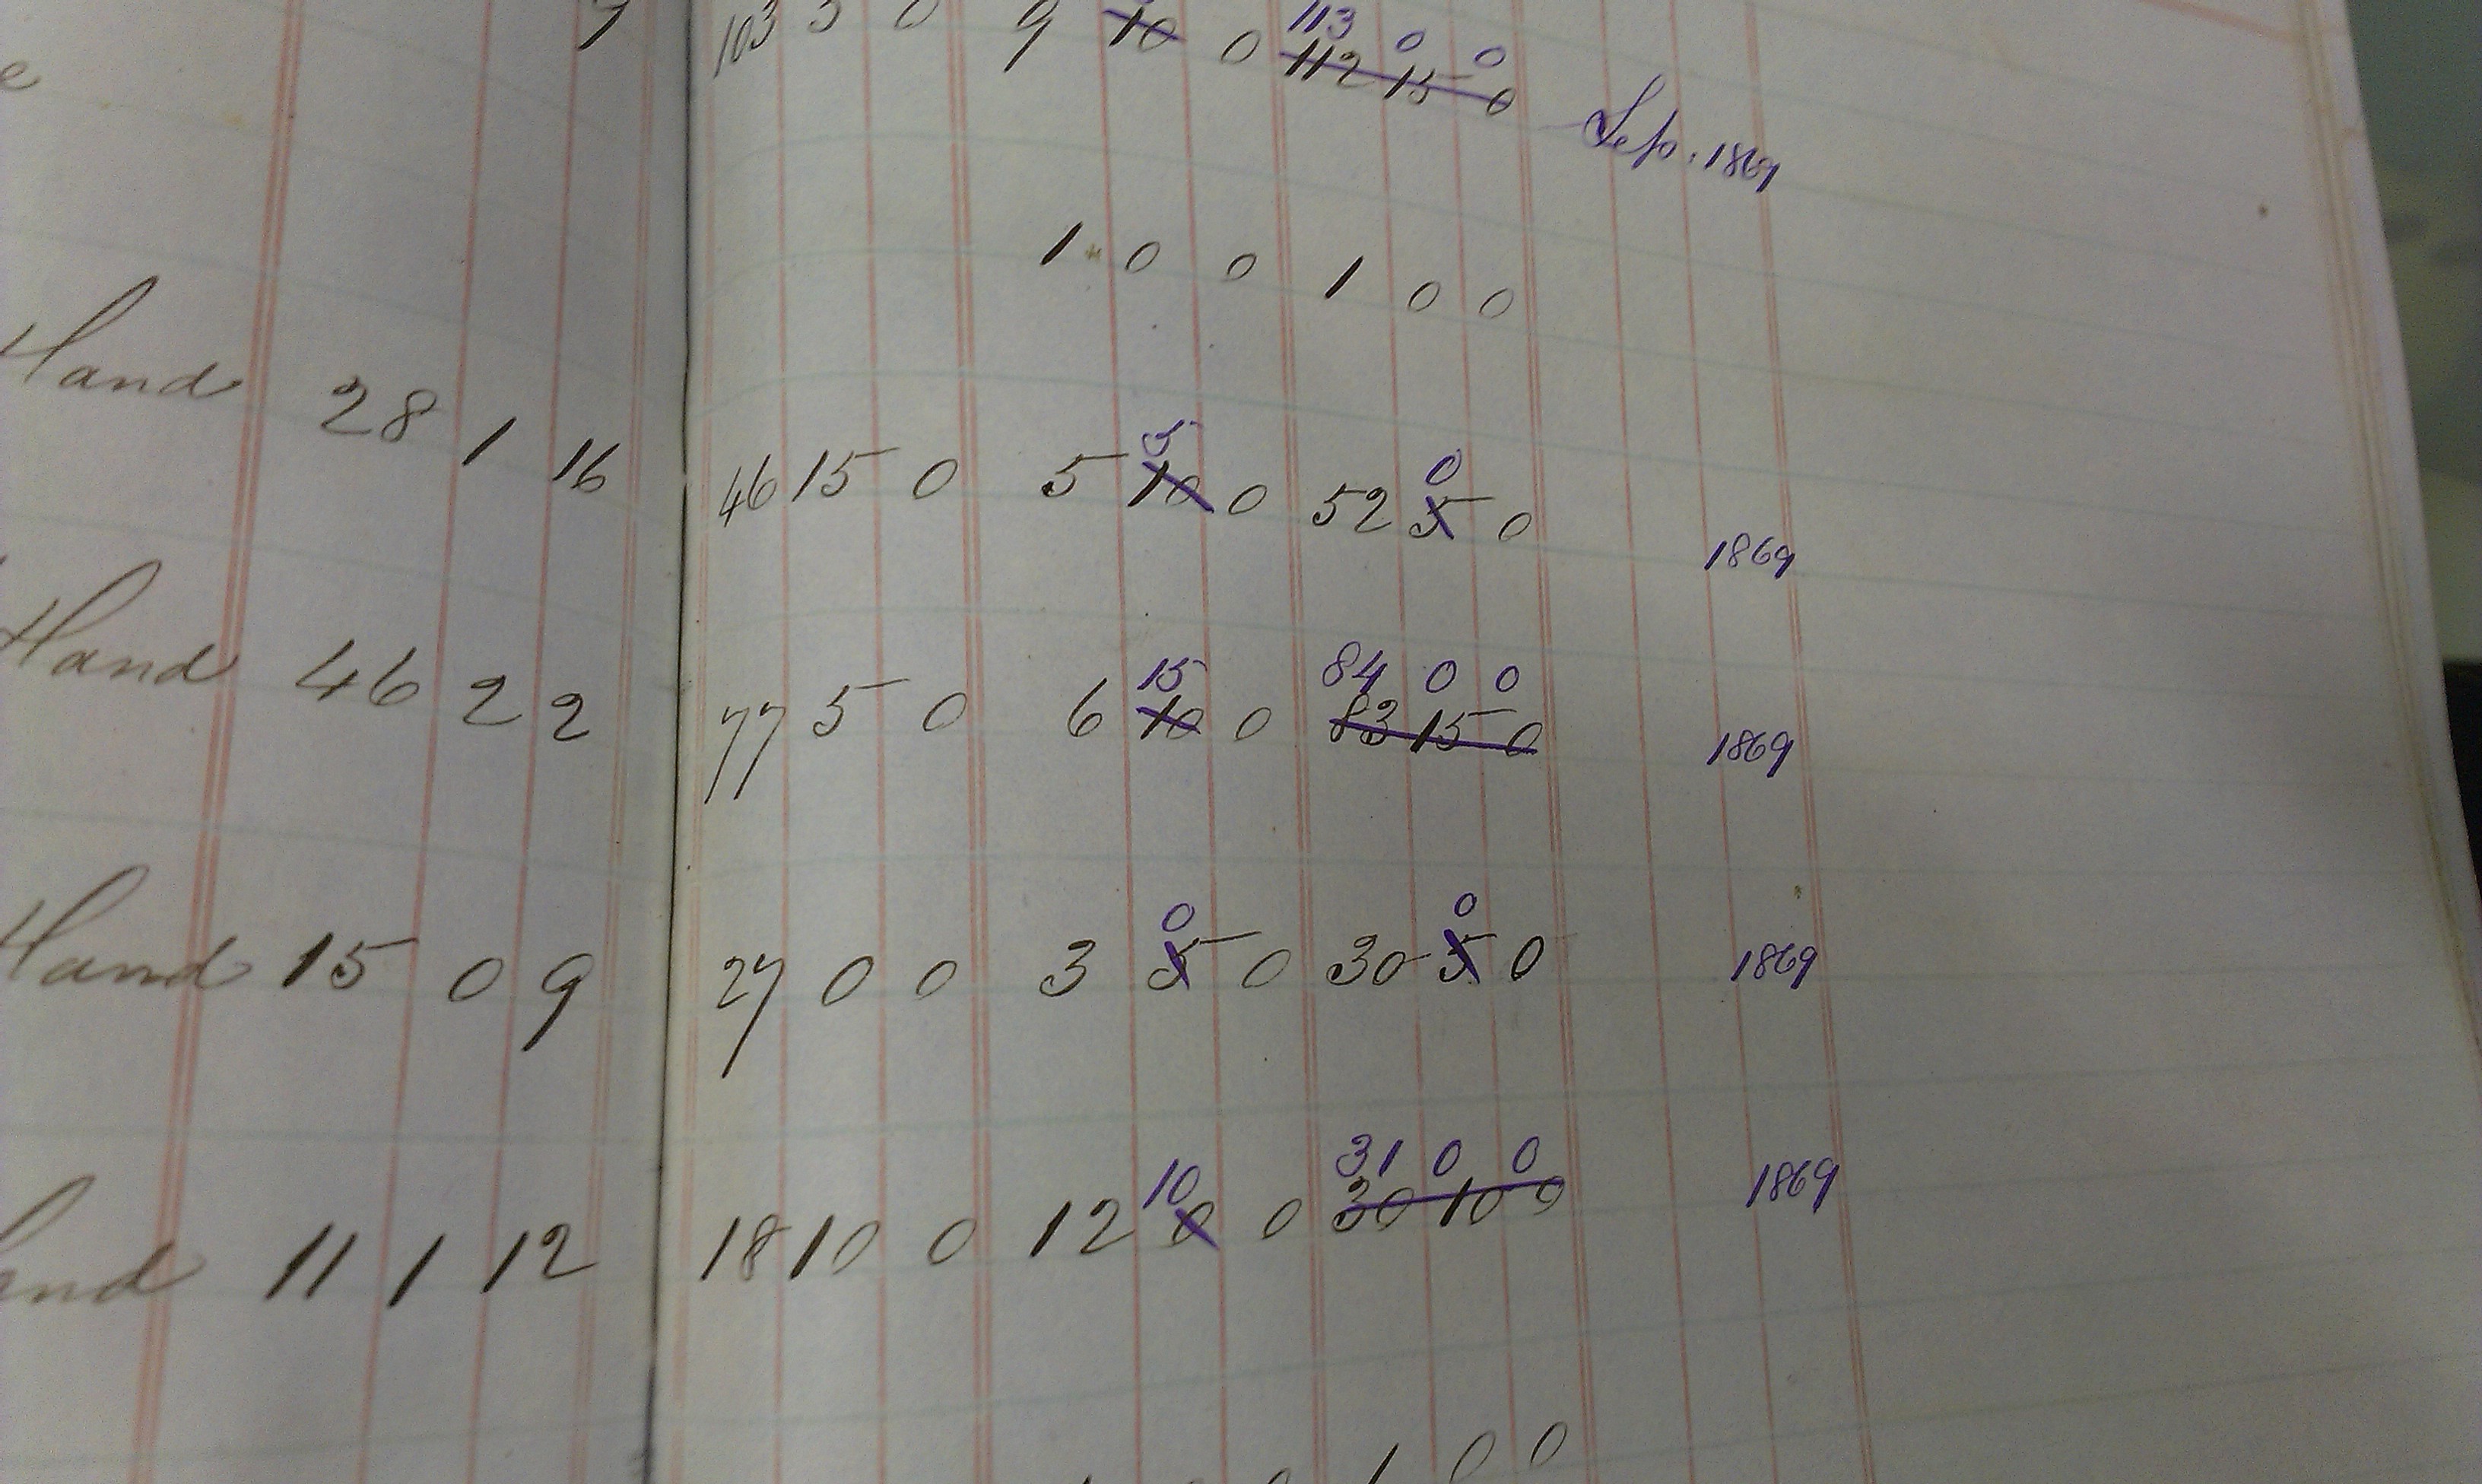 113 0 0
9 103 5 0 9 10 0 112 15 0
Sep. 1869
1 0 0 1 0 0
5 0
Hand 28 1 16 46 15 0 5 10 0 52 5 0
1869
15 84 0 0
Hand 46 2 2 77 5 0 6 10 0 83 15 0 1869
0 0
Hand 15 0 9 27 0 0 3 5 0 30 5 0 1869
10 31 0 0
and 11 1 12 18 10 0 12 0 0 30 10 0 1869
1 0 0